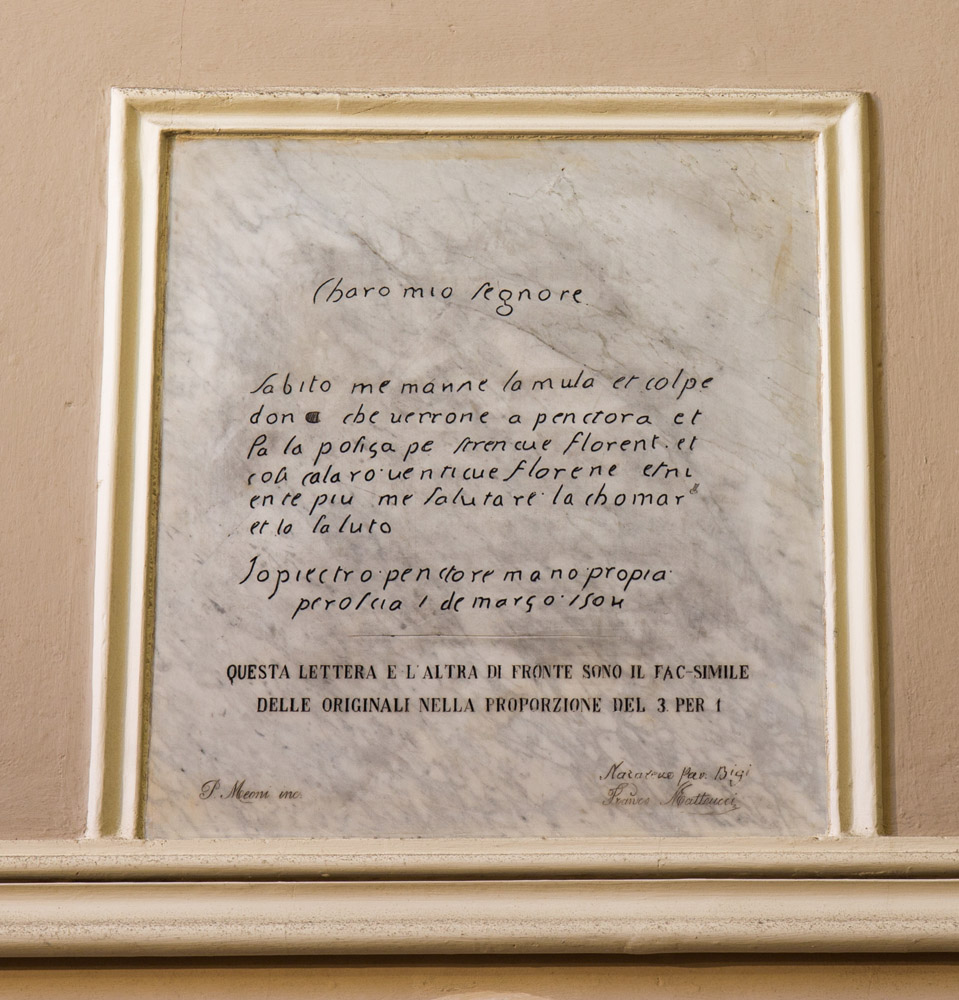 Charo mio segnore
sabito me manne la mula et colpe
don che uerrone a penctora et
fa la polisa pe strencue florent. et
coli calaro uenticue florene etni
ente piu me salutare la chomar
et la saluto
Jo piectro penctore mano propia
peroscia 1 de março 1504
QUESTA LETTERA E L'ALTRA DI FRONTE SONO IL FAC-SIMILE
DELLE ORIGINALI NELLA PROPORZIONE DEL 3 PER 1
P. Meoni inc.
Nazareno Bigi
Franco Matteucci